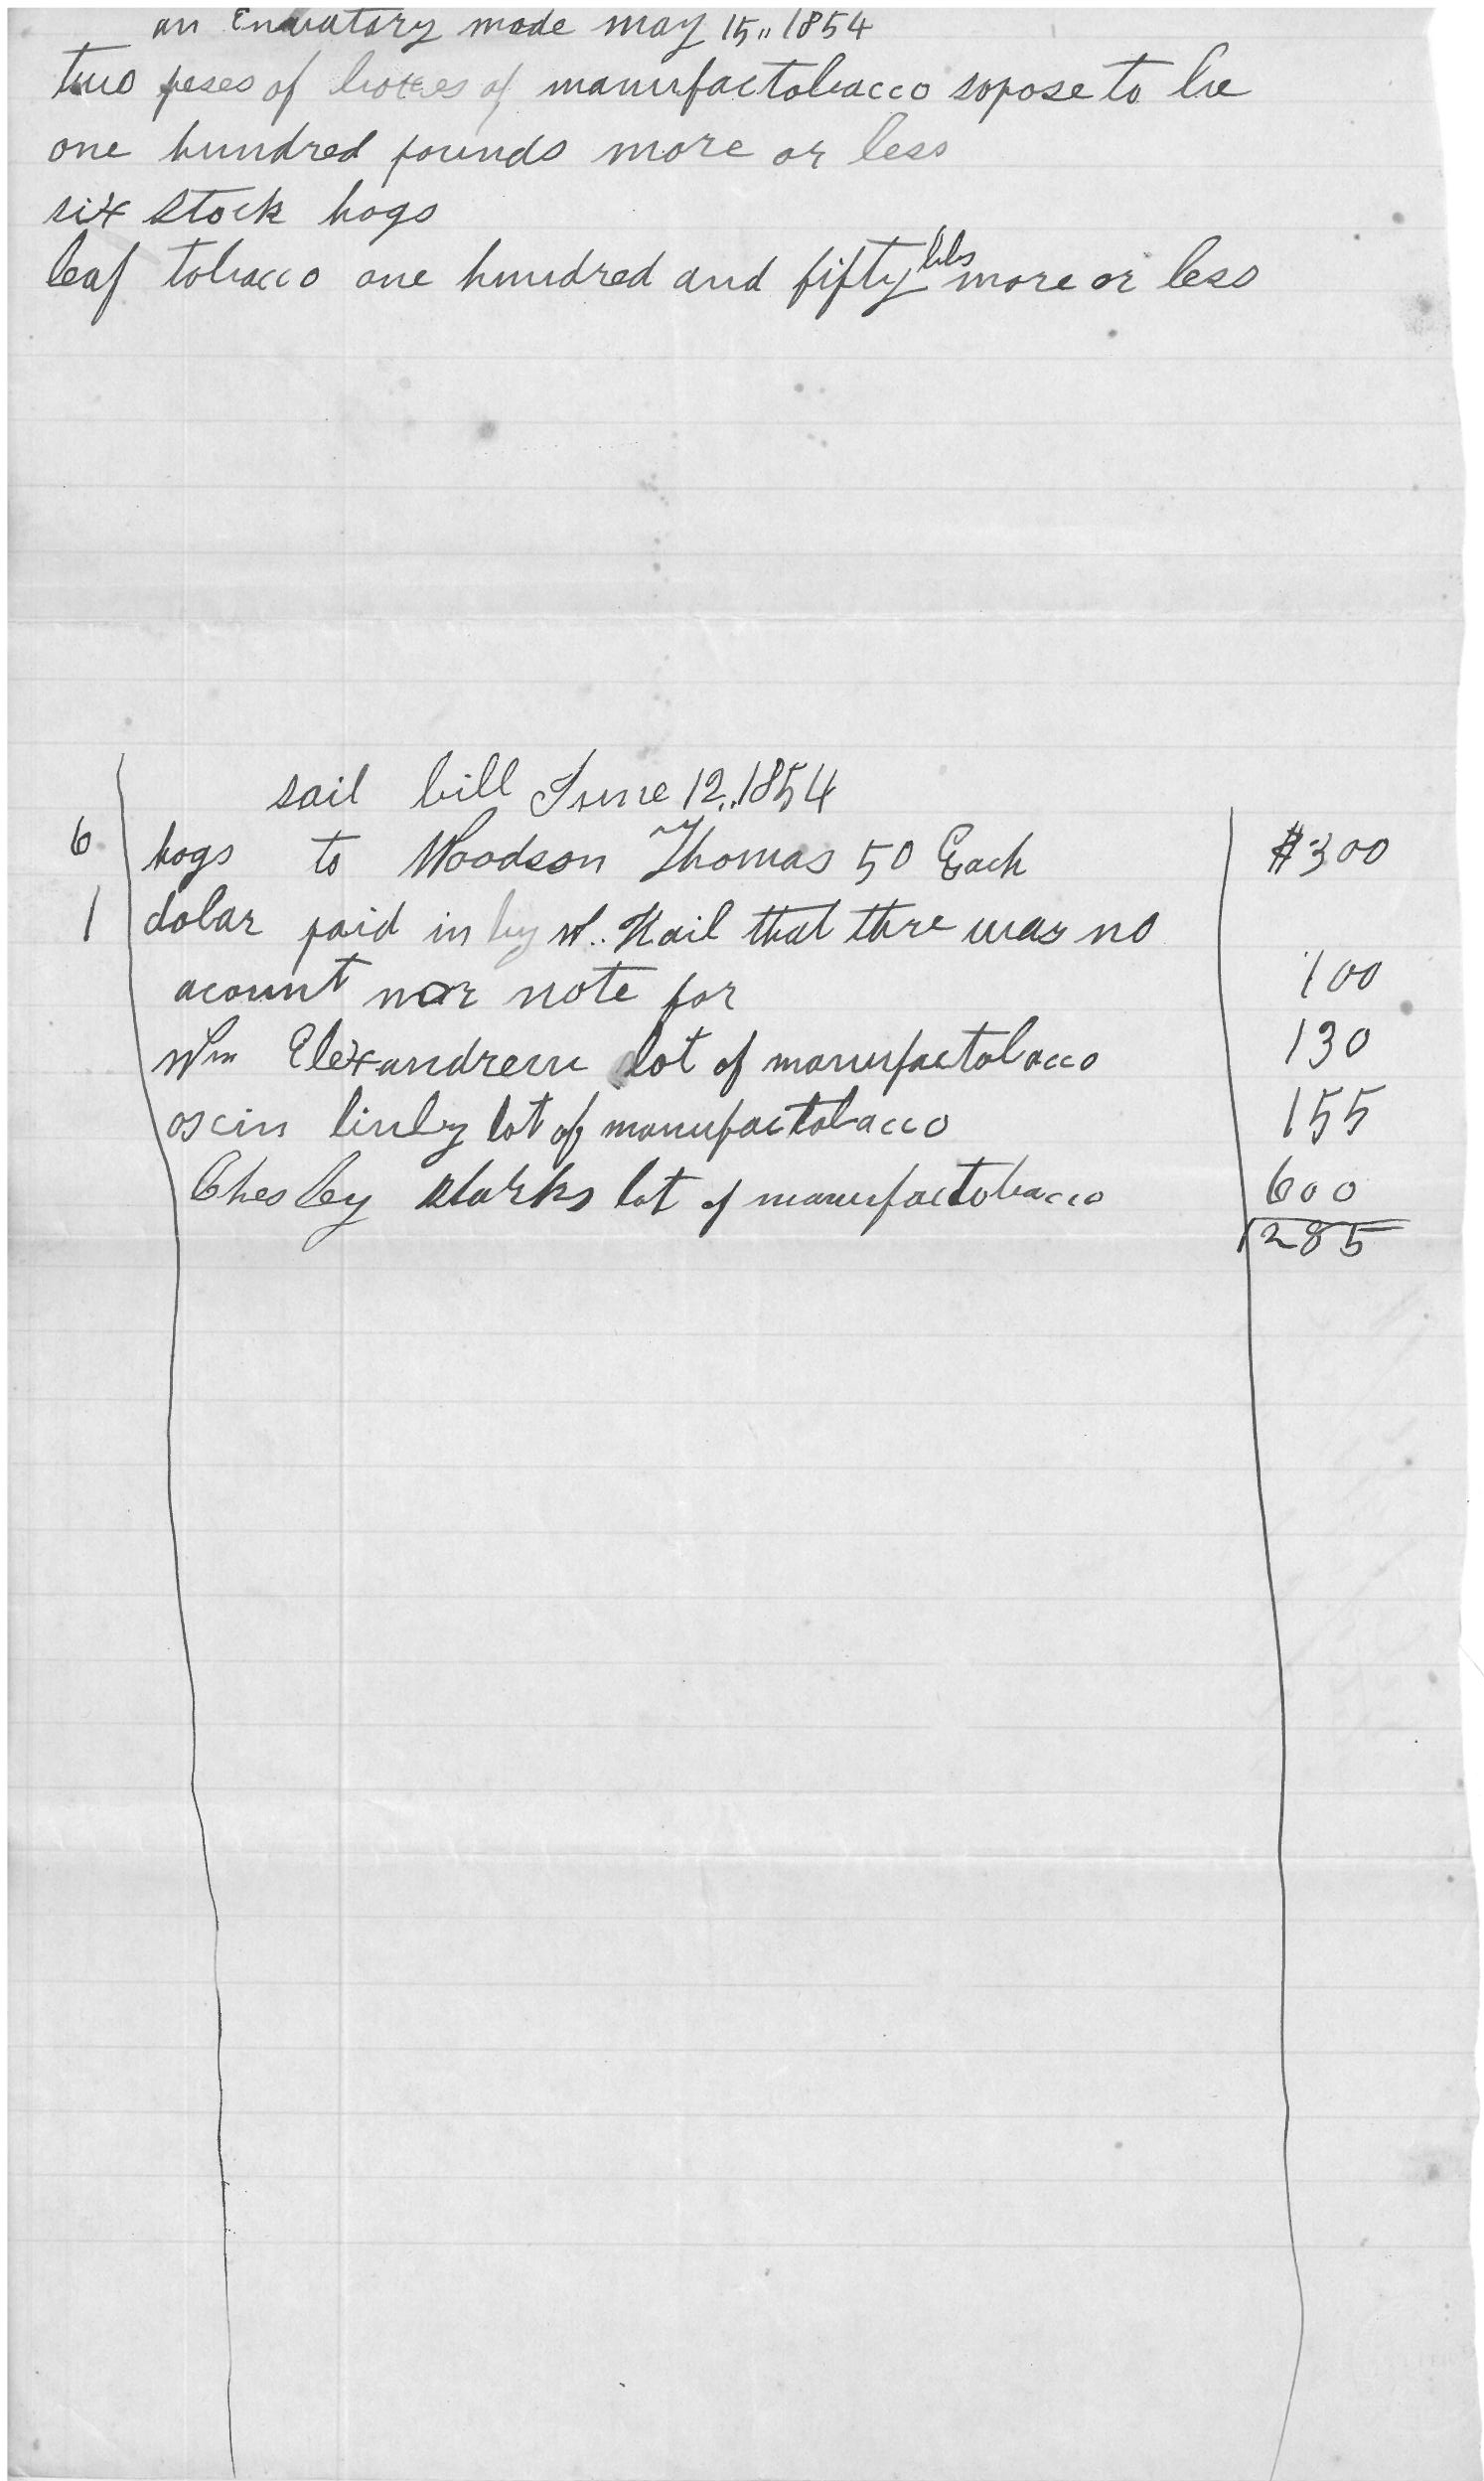 an Envatory made may 15,, 1854
two peses of boxes of manufactobacco sopose to be
one hundred pounds more or less
six stock hogs
leaf tobacco one hundred and fifty lbs more or less
sail bill June 12,, 1854
6 hogs to Woodson Thomas 50 Each $300
1 dolar paid in by W.. Kail that thre was no
acount nor note for 100
Wm Elexandrew lot of manufactobacco 130
oscin linly lot of manufactobacco 155
Chesley Clarks lot of manufactobacco 600
285